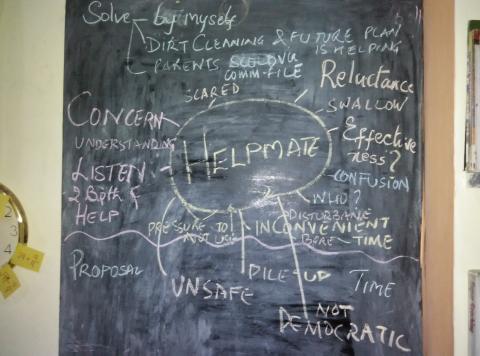 Solve - by myself
DIRT CLEANING & FUTURE PLAN
IS HELPING
PARENTS
COMM-FILE
SCARED
Reluctance
SWALLOW
CONCERN
UNDERSTANDING
LISTEN
2 Both &
HELP
HELPMATE
Effective
ness?
CONFUSION
WHO?
DISTURBANE
PRESSURE TO
NOT
INCONVENIENT
BORE - TIME
PROPOSAL
UNSAFE
PILE-UP
TIME
NOT
DEMOCRATIC
2
3
4